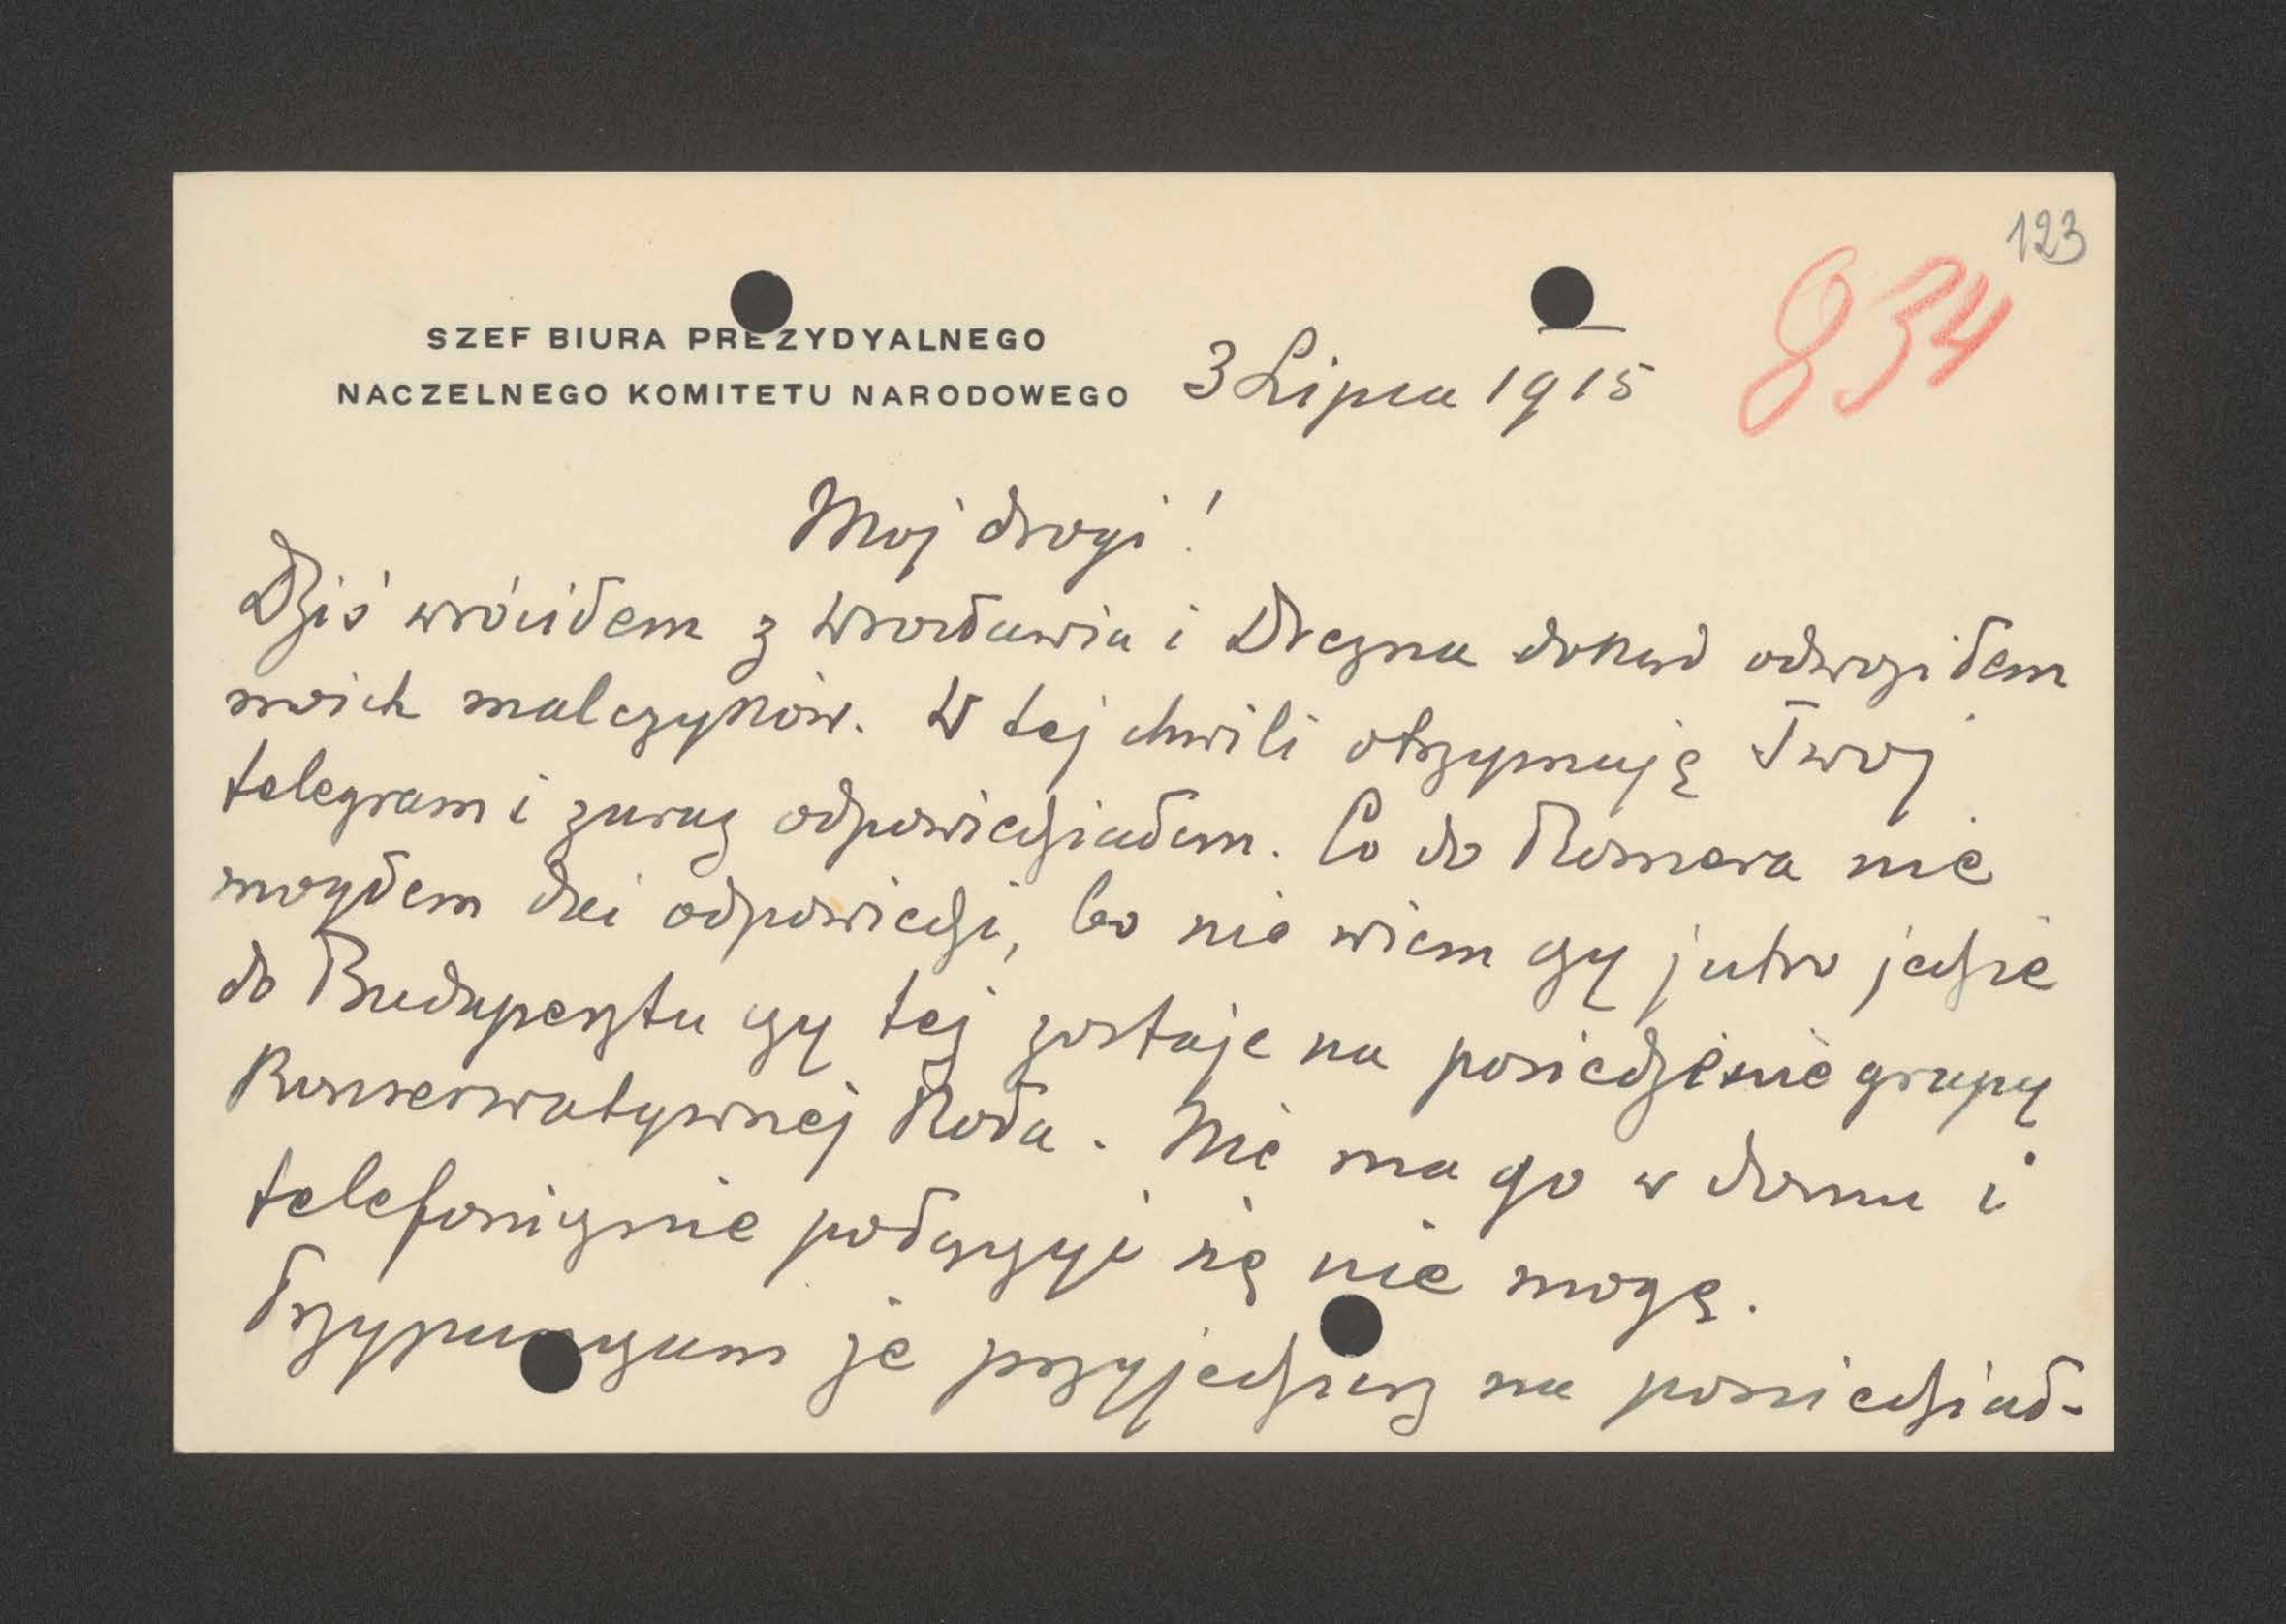 123
834
SZEF BIURA PREZYDYALNEGO
NACZELNEGO KOMITETU NARODOWEGO 3 Lipca 1915
Moj drogi!
Dziś wróciłem z Wrocławia i Drezna dokąd odwoziłem
moich malczyków. W tej chwili otrzymuję Twoj
telegram i zaraz odpowiedziałem. Co do Romera nie
mogłem dać odpowiedzi, bo nie wiem czy jutro jedzie
do Budapesztu czy tej zostaje na posiedzenie grupy
Konserwatywnej Koła. Nie ma go w domu i
telefonicznie połączyć się nie mogę.
Przypuszczam że przyjedziesz na poniedział-